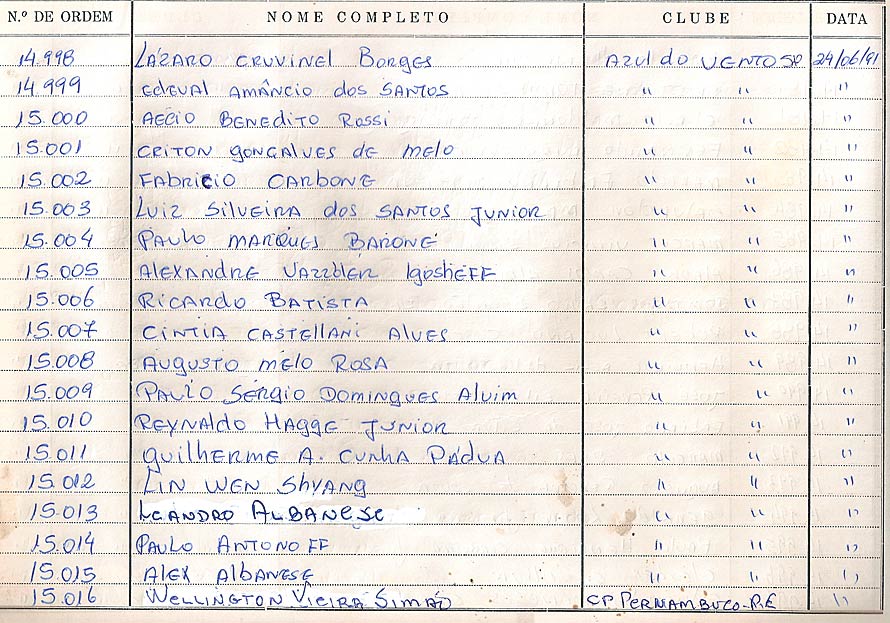 N.º DE ORDEM NOME COMPLETO CLUBE DATA
14.998 LÁZARO CRUVINEL Borges AZUl do VENTO SP 24/06/91
14.999 EDEVAL AMÂNCIO dos SANTOS " " "
15.000 AECIO BENEDITO Rossi " " "
15.001 CRITON GONCALVES de melo " " "
15.002 FABRICIO CARBONE " " "
15.003 LUIZ SILVEIRA dos SANTOS JUNIOR " " "
15.004 PAULO MARQUES BARONE " " "
15.005 ALEXANDRE IgoshEFF " " "
15.006 RICARDO BATISTA " " "
15.007 CINTIA CASTELLANI Alves " " "
15.008 AUGUSTO melo ROSA " " "
15.009 PAULO SÉRGIO DOMINGUES Alvim " " "
15.010 REYNALDO HAGGE JUNIOR " " "
15.011 GUILHERME A. CUNHA PÁDUA " " "
15.012 LIN WEN ShYANG " " "
15.013 LEANDRO ALBANESE " " "
15.014 PAULO ANTONOFF " " "
15.015 ALEX AlbANESE " " "
15.016 WELLINGTON VIEIRA SIMÃO CP PERNAMBUCO-PE "